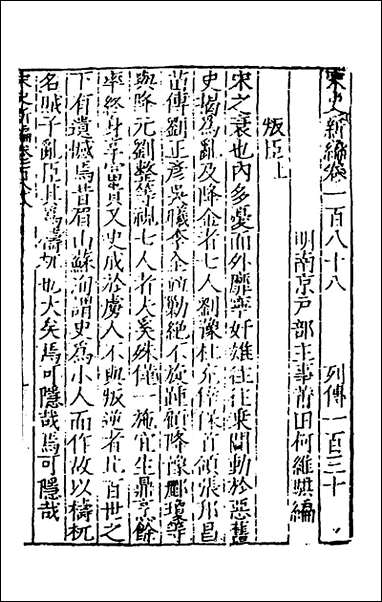 宋史新編卷一百八十八 列傳一百三十
明南京戶部主事莆田何維騏編
叛臣上
宋之衰也內多憂而外靡寧奸雄往往乘間動於惡舊
史揭為亂及降金者七人劉豫杜充倖保首領張邦昌
苗傅劉正彥吳曦李全勦絕不旋踵顧降豫酈瓊等
與降元劉整等視七人者大奚殊僅一施宜生鼎烹餘
率終身享富貴又史成於虜人不與叛逆者比百世之
下有遺憾焉昔眉山蘇洵謂史為小人而作故以檮杌
名賊子亂臣其為檮杌也大矣焉可隱哉焉可隱哉
宋史新編卷一百八十八